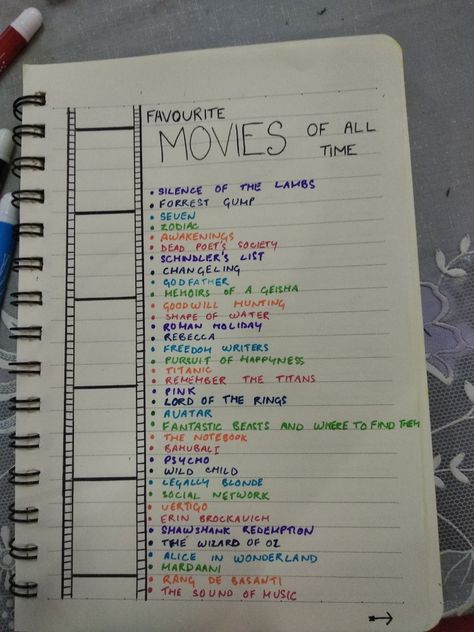 FAVOURITE
MOVIES OF ALL TIME
• SILENCE OF THE LAMBS
• FORREST GUMP
• SEVEN
• ZODIAC
• AWAKENINGS
• DEAD POET'S SOCIETY
• SCHINDLER'S LIST
• CHANGELING
• GODFATHER
• MEMOIRS OF A GEISHA
• GOODWILL HUNTING
• SHAPE OF WATER
• ROMAN HOLIDAY
• REBECCA
• FREEDOM WRITERS
• PURSUIT OF HAPPYNESS
• TITANIC
• REMEMBER THE TITANS
• PINK
• LORD OF THE RINGS
• AVATAR
• FANTASTIC BEASTS AND WHERE TO FIND THEM
• THE NOTEBOOK
• BAHUBALI
• PSYCHO
• WILD CHILD
• LEGALLY BLONDE
• SOCIAL NETWORK
• VERTIGO
• ERIN BROCKAVICH
• SHAWSHANK REDEMPTION
• THE WIZARD OF OZ
• ALICE IN WONDERLAND
• MARDAANI
• RANG DE BASANTI
• THE SOUND OF MUSIC